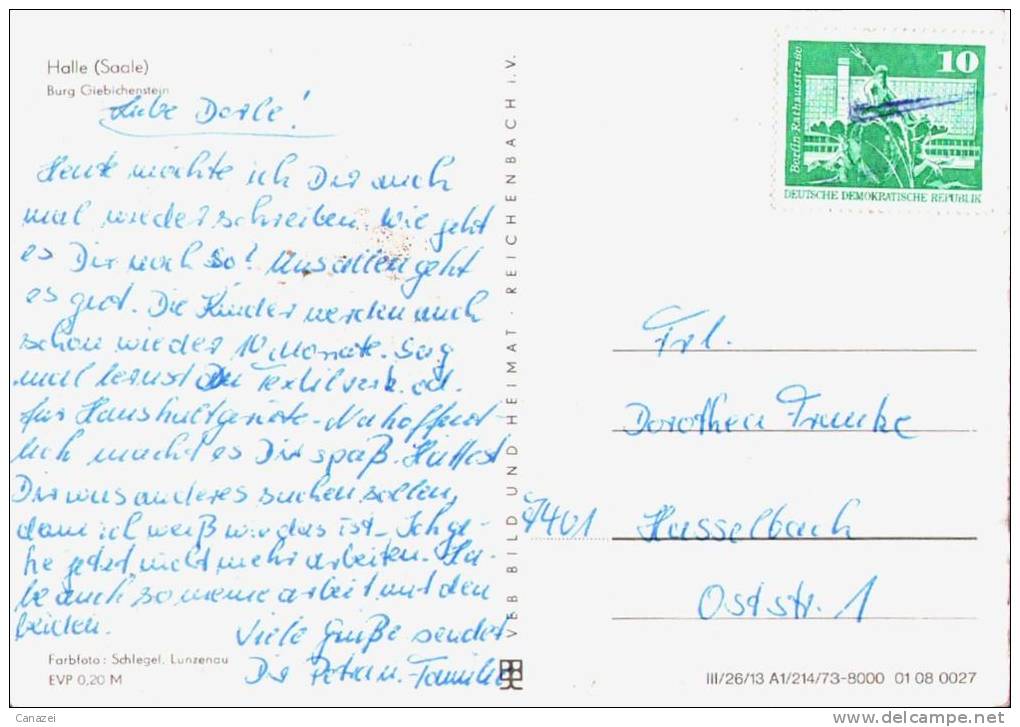 Halle (Saale)
Burg Giebichenstein
Liebe Dorle!
Heute möchte ich Dir auch
mal wieder schreiben. Wie geht
es Dir noch so! Uns allen geht
es gut. Die Kinder werden auch
schon wieder 10 Monate. Sag
mal lernst Du Textilverk. od.
für Haushaltgeräte. Na hoffent-
lich macht es Dir spaß. Hättest
Dir was anderes suchen sollen,
denn ich weiß wie das ist. Ich ge-
he jetzt nicht mehr arbeiten. Ha-
be auch so meine arbeit mit den
beiden.
Viele Grüße sendet
Dir Petra u. Familie
Farbfoto: Schlegel, Lunzenau
EVP 0,20 M
VEB BILD UND HEIMAT · REICHENBACH i. V.
10
Berlin, Rathausstraße
DEUTSCHE DEMOKRATISCHE REPUBLIK
Frl.
Dorothea
9401 Hasselbach
Oststr. 1
III/26/13 A1/214/73-8000 01 08 0027
Canazei
http://www.delcampe.net